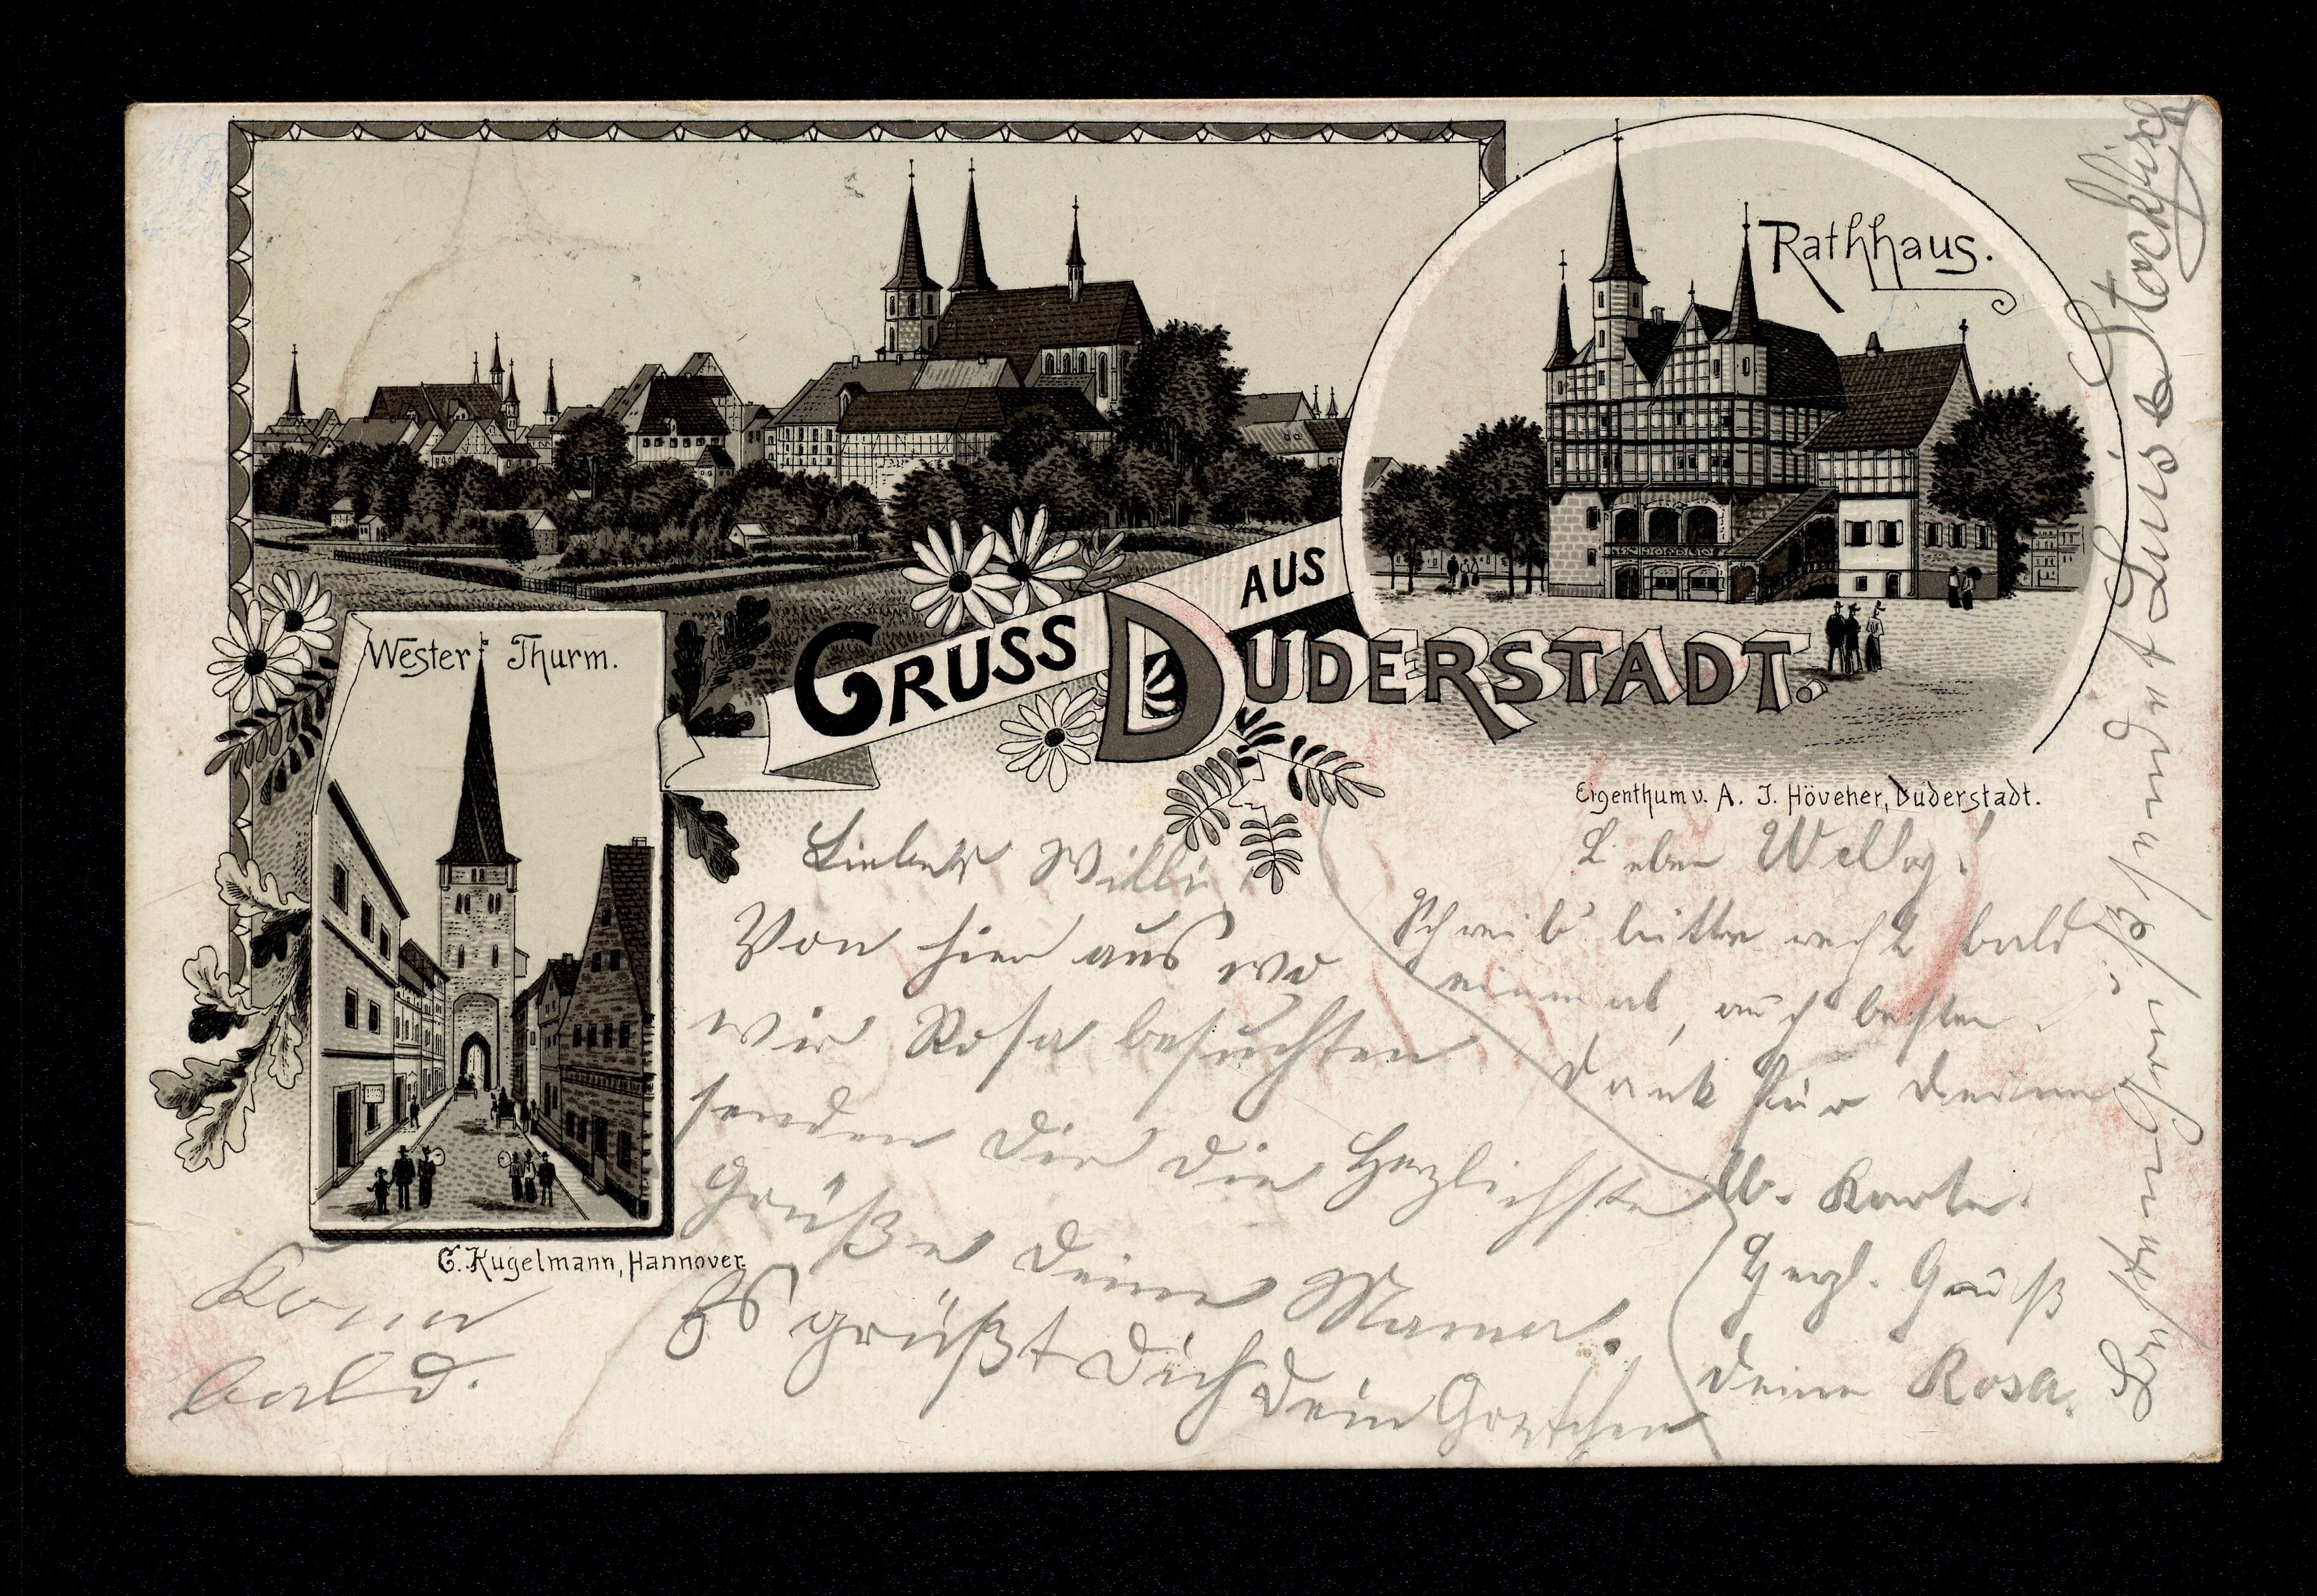 Rathhaus.
Wester Thurm.
GRUSS AUS DUDERSTADT.
Eigenthum v. A. J. Höveher, Duderstadt.
G. Kugelmann, Hannover.
Lieber Willi
Von hier aus wo
wir Rosa besuchten
senden Dir die Herzlichste
Grüße Deine Mama.
Es grüßt Dich
Dein Gretchen
Komm
bald.
Lieber Willy!
Schreib' bitte recht bald
einmal, auch besten
Dank für Deine
lb. Karte.
Herzl. Gruß
Deine Rosa.
Besten Gruß sendet Luise Stockfisch